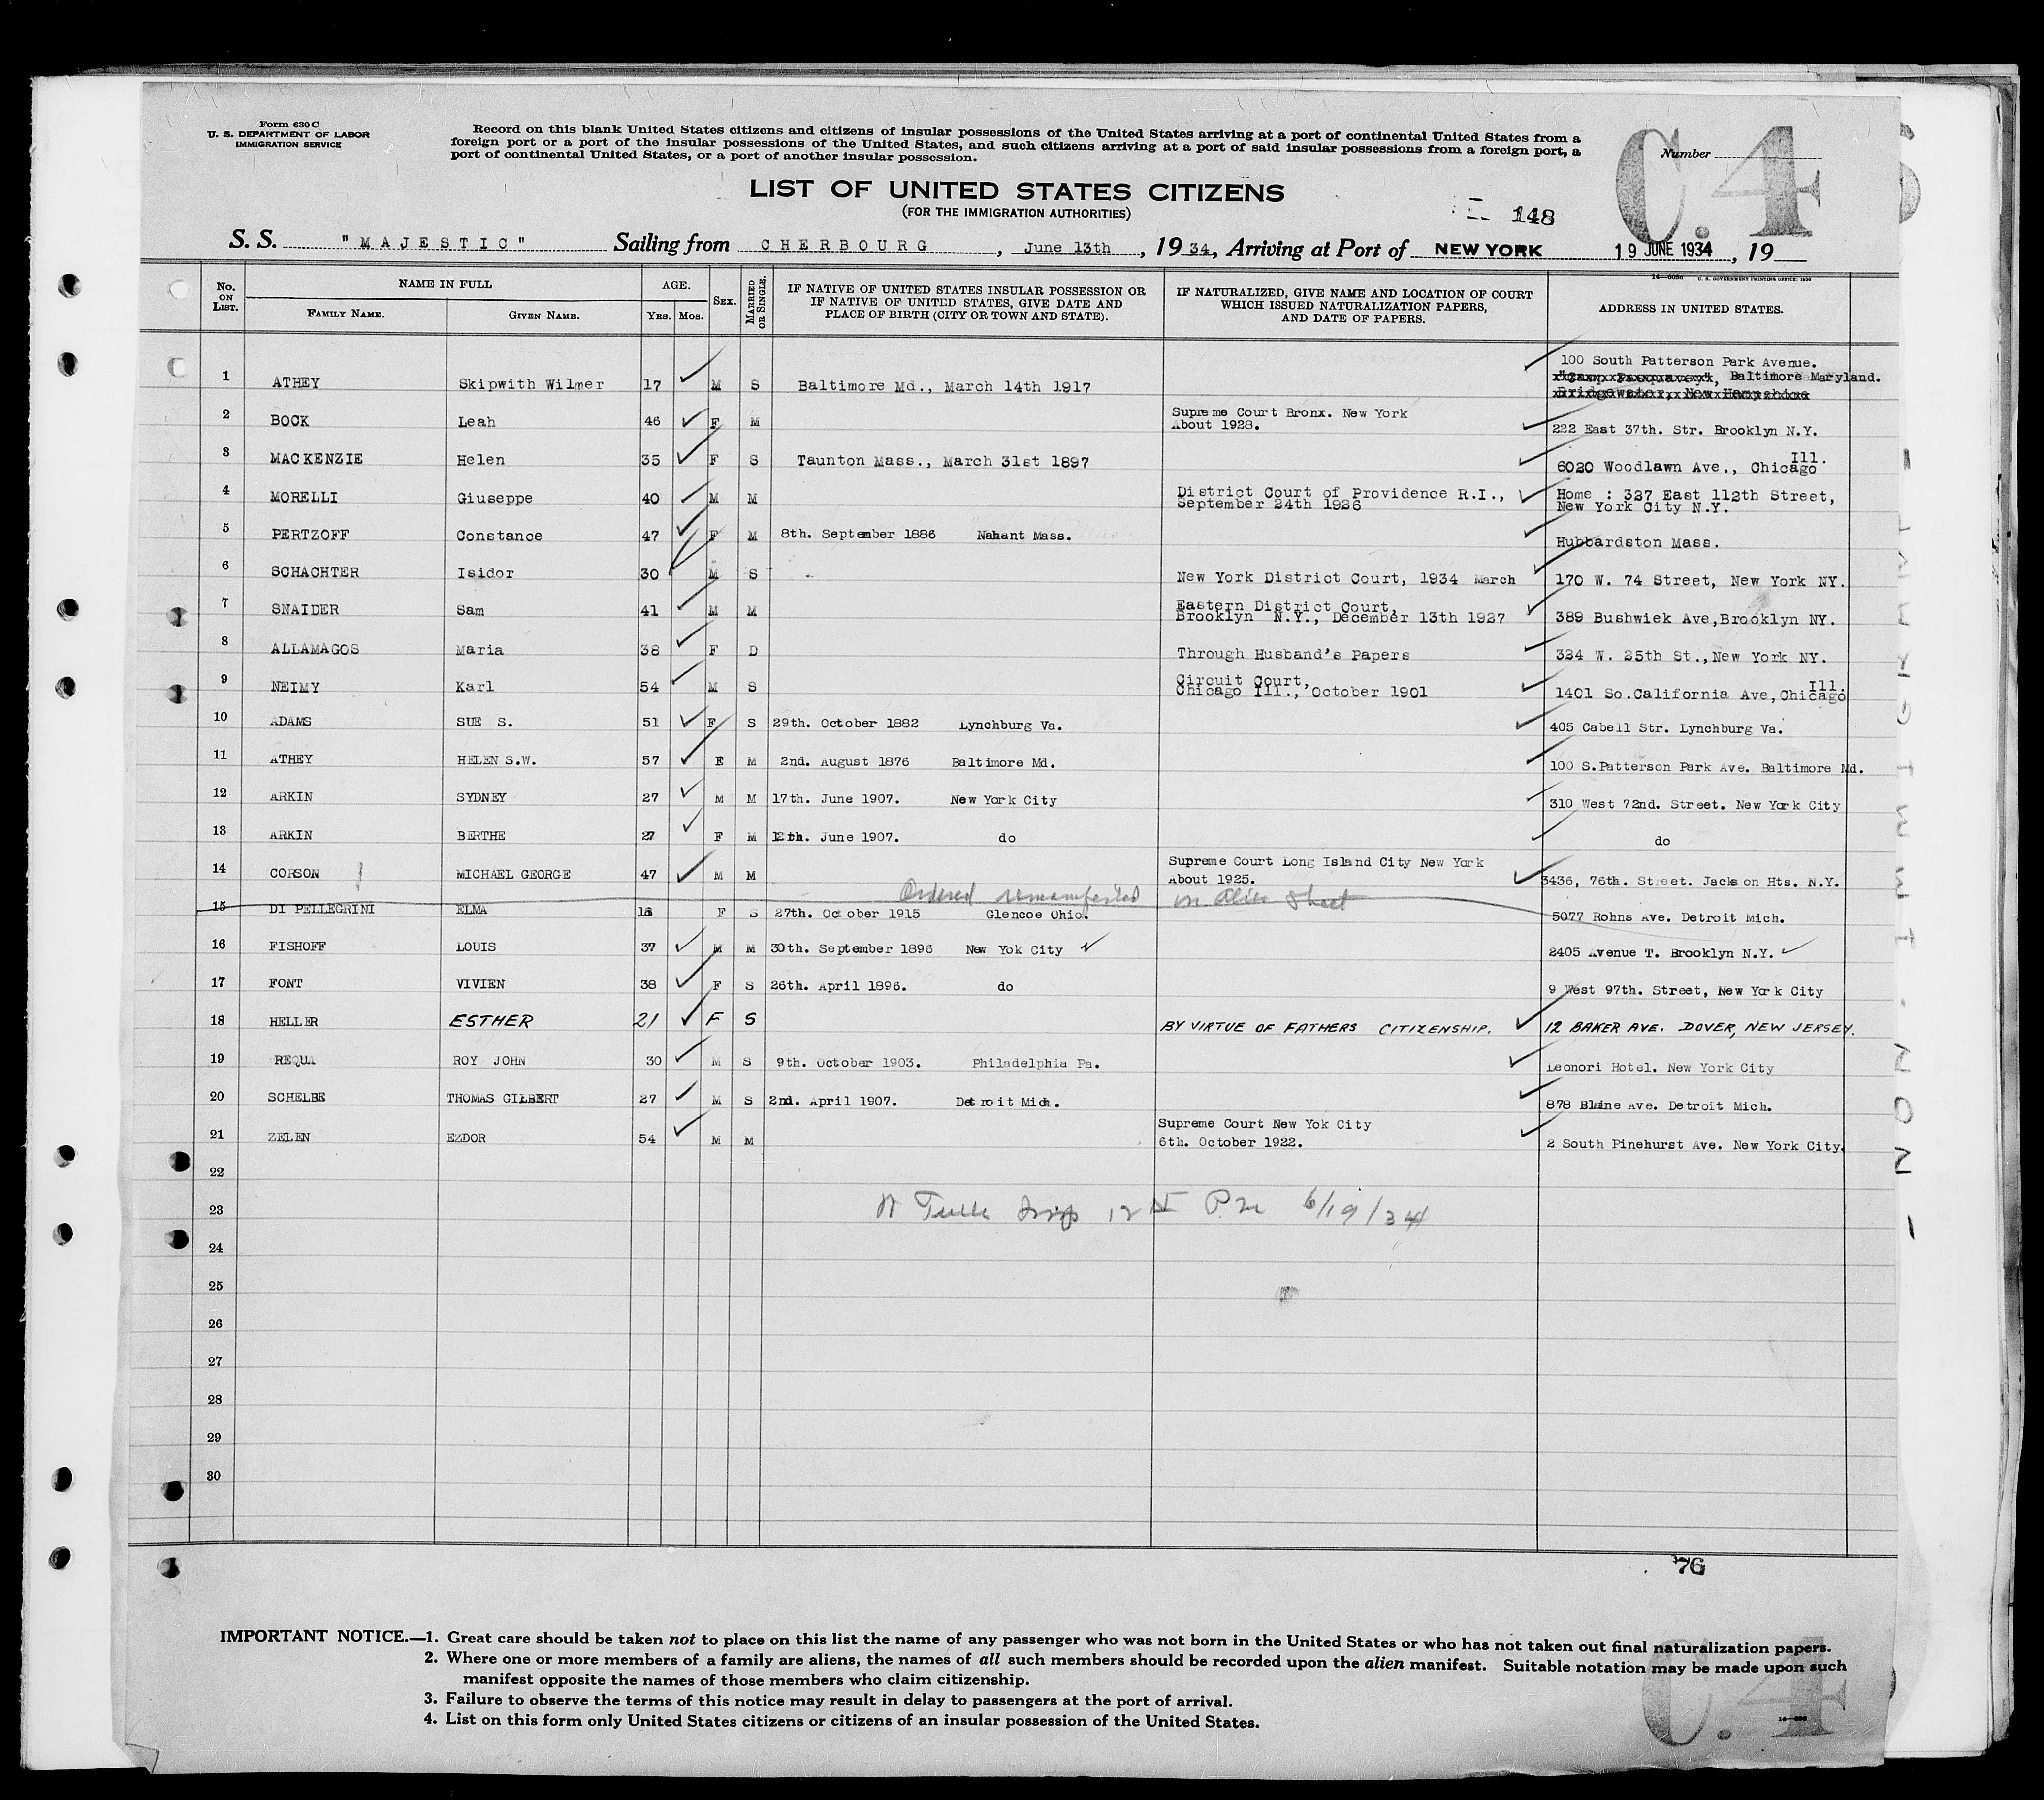 Form 630 C
U. S. DEPARTMENT OF LABOR
IMMIGRATION SERVICE
Record on this blank United States citizens and citizens of insular possessions of the United States arriving at a port of continental United States from a
foreign port or a port of the insular possessions of the United States, and such citizens arriving at a port of said insular possessions from a foreign port, a
port of continental United States, or a port of another insular possession.
Number
C.4
LIST OF UNITED STATES CITIZENS
(FOR THE IMMIGRATION AUTHORITIES)
148
S. S. "MAJESTIC" Sailing from CHERBOURG, June 13th, 1934, Arriving at Port of NEW YORK 19 JUNE 1934, 19
No. ON LIST. NAME IN FULL FAMILY NAME. GIVEN NAME. AGE. YRS. MOS. SEX. MARRIED OR SINGLE. IF NATIVE OF UNITED STATES INSULAR POSSESSION OR IF NATIVE OF UNITED STATES, GIVE DATE AND PLACE OF BIRTH (CITY OR TOWN AND STATE). IF NATURALIZED, GIVE NAME AND LOCATION OF COURT WHICH ISSUED NATURALIZATION PAPERS, AND DATE OF PAPERS. ADDRESS IN UNITED STATES.
100 South Patterson Park Avenue.
1 ATHEY Skipwith Wilmer 17 M S Baltimore Md., March 14th 1917 Baltimore Maryland.
Bridgewater, New Hampshire
2 BOCK Leah 46 F M Supreme Court Bronx. New York About 1928. 222 East 37th. Str. Brooklyn N.Y.
3 MACKENZIE Helen 35 F S Taunton Mass., March 31st 1897 6020 Woodlawn Ave., Chicago Ill.
4 MORELLI Giuseppe 40 M M District Court of Providence R.I., September 24th 1926 Home : 327 East 112th Street, New York City N.Y.
5 PERTZOFF Constance 47 F M 8th. September 1886 Nahant Mass. Hubbardston Mass.
6 SCHACHTER Isidor 30 M S New York District Court, 1934 March 170 W. 74 Street, New York NY.
7 SNAIDER Sam 41 M M Eastern District Court, Brooklyn N.Y., December 13th 1927 389 Bushwiek Ave,Brooklyn NY.
8 ALLAMAGOS Maria 38 F D Through Husband's Papers 324 W. 25th St.,New York NY.
9 NEIMY Karl 54 M S Circuit Court, Chicago Ill., October 1901 1401 So.California Ave,Chicago Ill.
10 ADAMS SUE S. 51 F S 29th. October 1882 Lynchburg Va. 405 Cabell Str. Lynchburg Va.
11 ATHEY HELEN S.W. 57 F M 2nd. August 1876 Baltimore Md. 100 S.Patterson Park Ave. Baltimore Md.
12 ARKIN SYDNEY 27 M M 17th. June 1907. New York City 310 West 72nd. Street. New York City
13 ARKIN BERTHE 27 F M 12th. June 1907. do do
14 CORSON MICHAEL GEORGE 47 M M Supreme Court Long Island City New York About 1925. 3436, 76th. Street. Jackson Hts. N.Y.
Ordered remanifested on alien sheet
15 DI PELLEGRINI ELMA 18 F S 27th. October 1915 Glencoe Ohio. 5077 Rohns Ave. Detroit Mich.
16 FISHOFF LOUIS 37 M M 30th. September 1896 New Yok City 2405 Avenue T. Brooklyn N.Y.
17 FONT VIVIEN 38 F S 26th. April 1896. do 9 West 97th. Street, New York City
18 HELLER ESTHER 21 F S BY VIRTUE OF FATHERS CITIZENSHIP. 12 BAKER AVE. DOVER, NEW JERSEY.
19 REQUA ROY JOHN 30 M S 9th. October 1903. Philadelphia Pa. Leonori Hotel. New York City
20 SCHELBE THOMAS GILBERT 27 M S 2nd. April 1907. Detroit Mich. 878 Blaine Ave. Detroit Mich.
21 ZELEN EZDOR 54 M M Supreme Court New Yok City 6th. October 1922. 2 South Pinehurst Ave. New York City.
22
23 Insp 12 PM 6/19/34
24
25
26
27
28
29
30
76
IMPORTANT NOTICE.—1. Great care should be taken not to place on this list the name of any passenger who was not born in the United States or who has not taken out final naturalization papers.
2. Where one or more members of a family are aliens, the names of all such members should be recorded upon the alien manifest. Suitable notation may be made upon such
manifest opposite the names of those members who claim citizenship.
3. Failure to observe the terms of this notice may result in delay to passengers at the port of arrival.
4. List on this form only United States citizens or citizens of an insular possession of the United States.
C.4